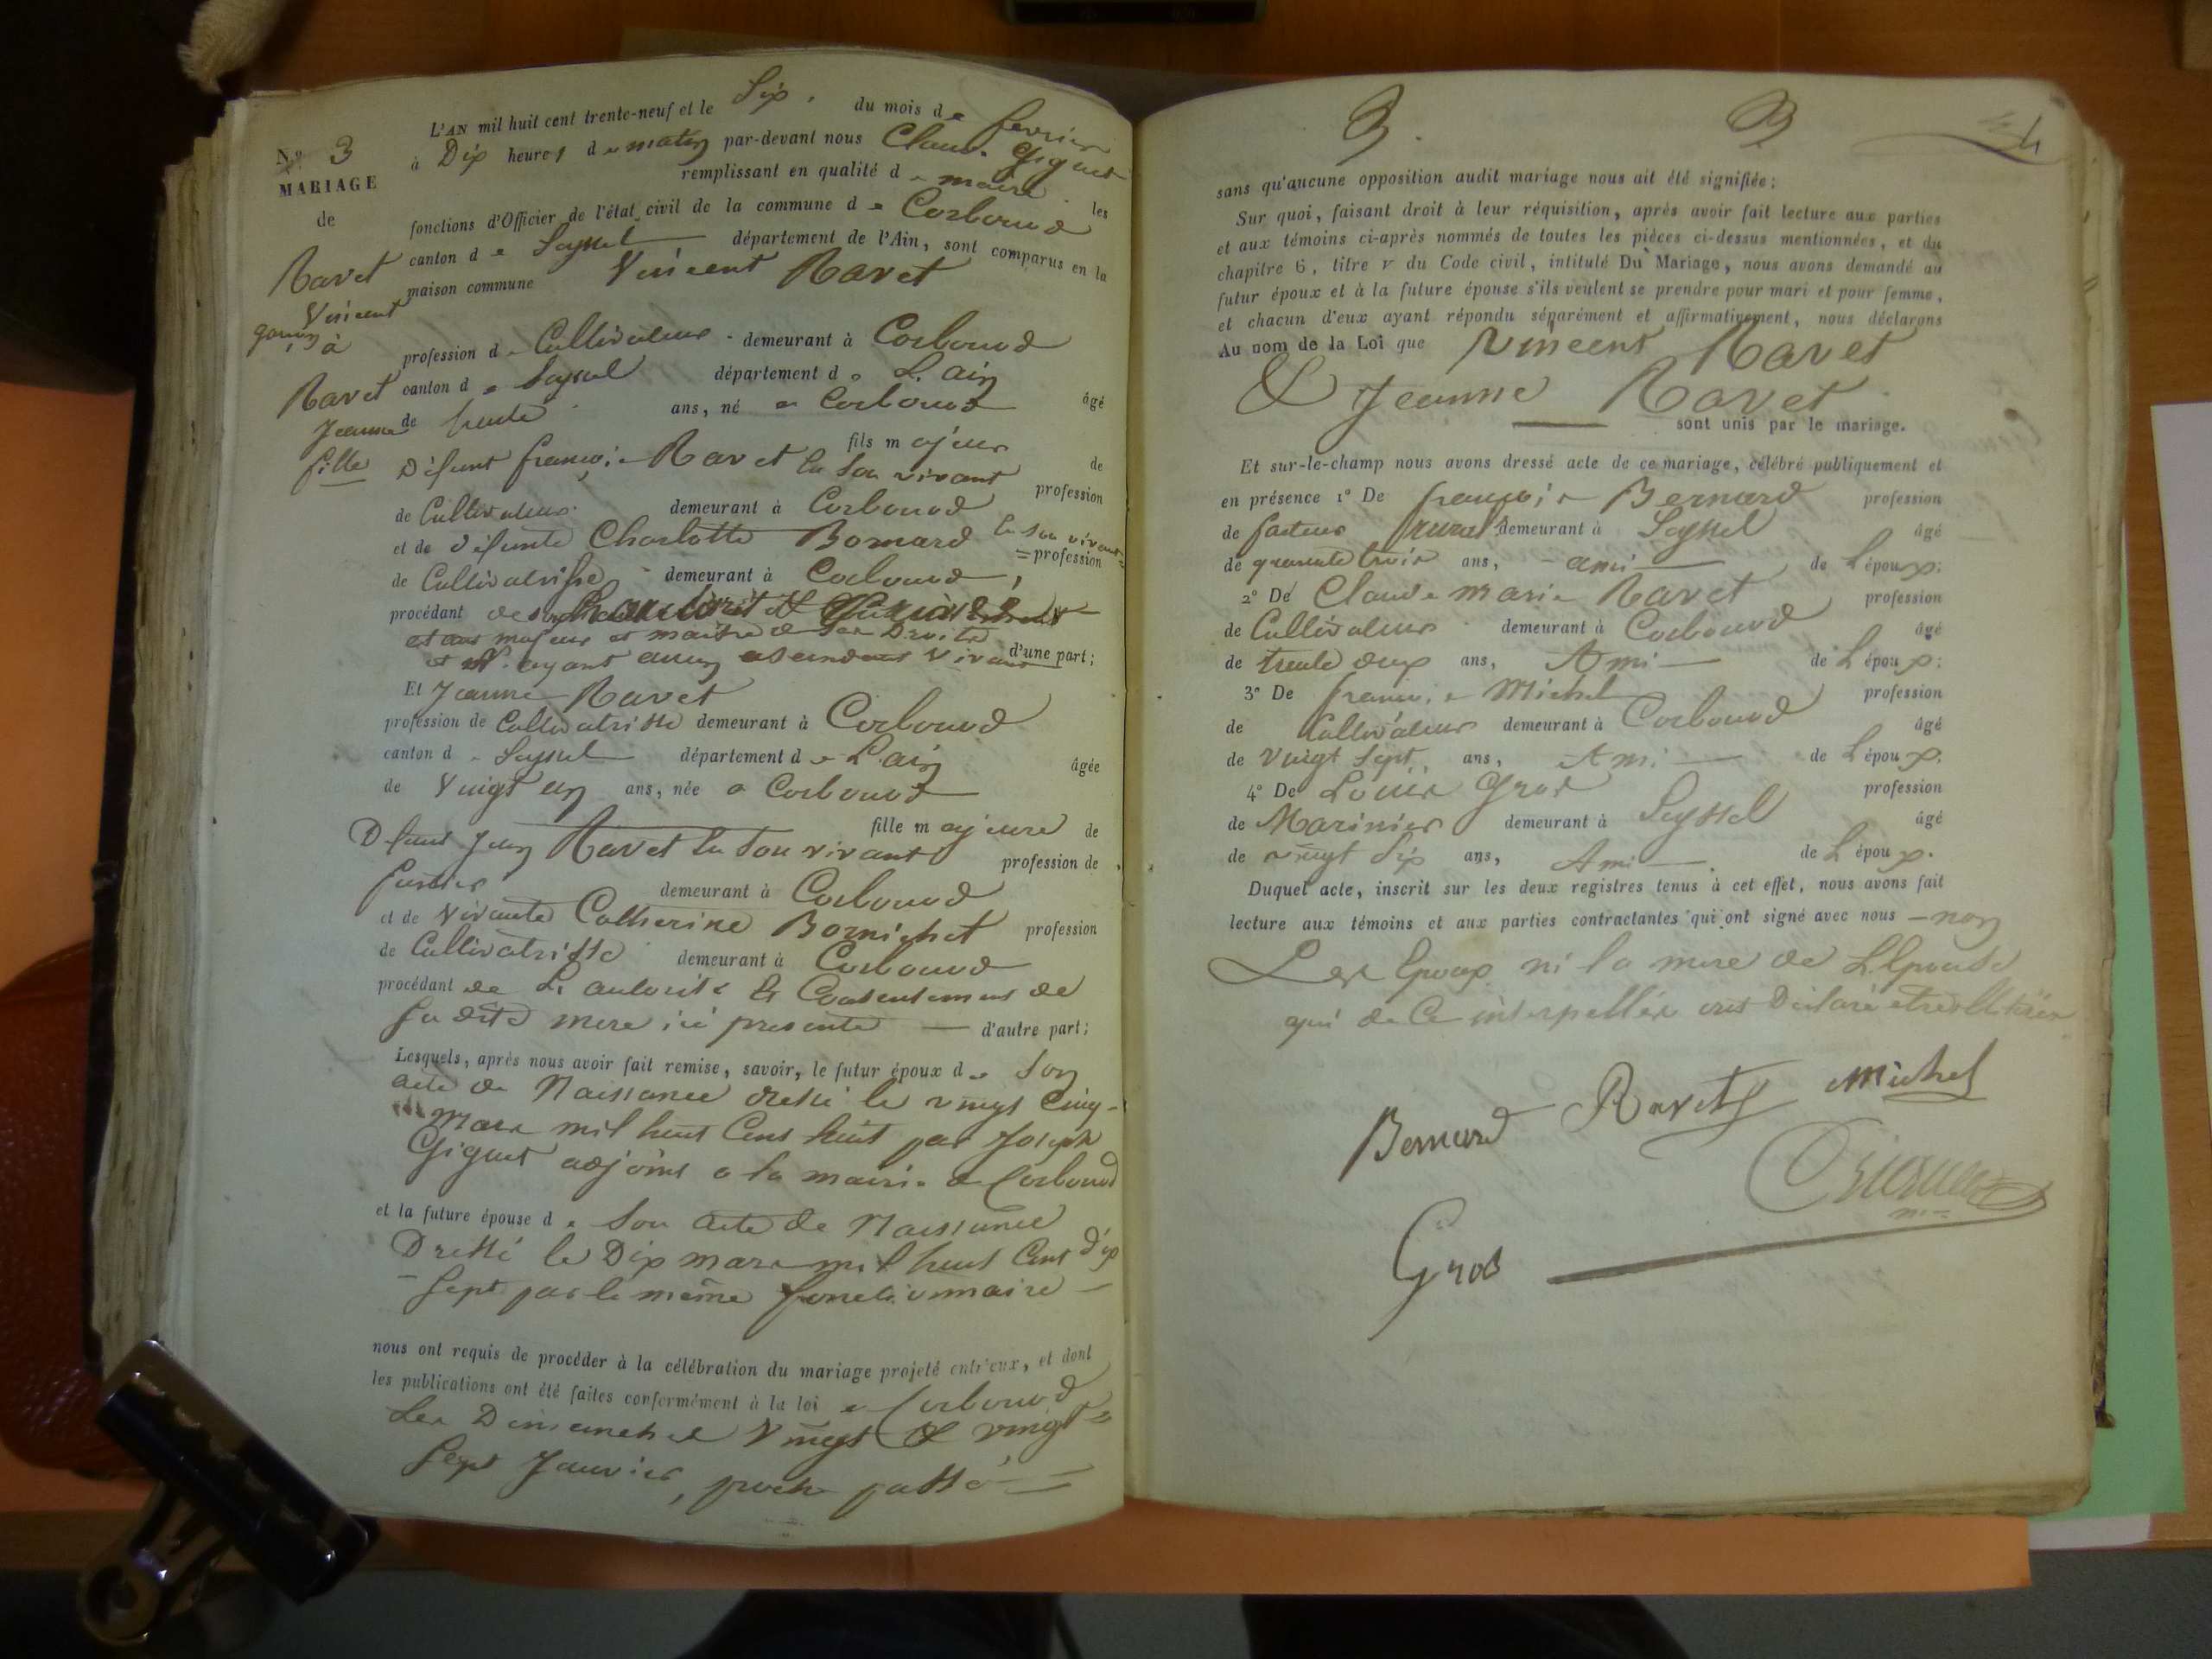 L'AN mil huit cent trente-neuf et le Six du mois de fevrier
à Dix heures du matin par-devant nous Claude Giguet
remplissant en qualité de maire les
fonctions d'Officier de l'état civil de la commune de Corbonod
canton de Seyssel département de l'Ain, sont comparus en la
maison commune Vincent Ravet
profession de Cultivateur demeurant à Corbonod
canton de Seyssel département de L'ain âgé
de trente ans, né a Corbonod
fils majeur de
Défunt françois Ravet En Son vivant profession
de Cultivateur demeurant à Corbonod
et de défunte Charlotte Bomard En son vivant
=profession
de Cultivatrisse demeurant à Corbonod,
procédant
majeur et maitre de ses Droits
et N'ayant aucun asendant Vivant d'une part;
Et Jeanne Ravet
profession de Cultivatrisse demeurant à Corbonod
canton de Seyssel département de L'ain âgée
de Vingt un ans, née a Corbonod
fille majeure de
Défunt Jean Ravet En Son vivant profession de
demeurant à Corbonod
et de vivante Catherine Bornichet profession
de Cultivatrisse demeurant à Corbonod
procédant de L'autorité & Consentement de
Sa dite mere ici presente — d'autre part;
Lesquels, après nous avoir fait remise, savoir, le futur époux de Son
acte de Naissance dressé le vingt Cinq
Mars mil huit Cent huit par Joseph
Giguet adjoint a la mairie de Corbonod
et la future épouse de Son acte de Naissance
Dressé le Dix mars mil huit Cent dix
Sept par le même fonctionnaire —
nous ont requis de procéder à la célébration du mariage projeté entr'eux, et dont
les publications ont été faites conformément à la loi a Corbonod
Les Dimanches Vingt & vingt
Sept Janvier, proche passé =
No 3
MARIAGE
de
Ravet
Vincent
garçon
à
Ravet
Jeanne
fille
3. 3 4
sans qu'aucune opposition audit mariage nous ait été signifiée;
Sur quoi, faisant droit à leur réquisition, après avoir fait lecture aux parties
et aux témoins ci-après nommés de toutes les pièces ci-dessus mentionnées, et du
chapitre 6, titre v du Code civil, intitulé Du Mariage, nous avons demandé au
futur époux et à la future épouse s'ils veulent se prendre pour mari et pour femme,
et chacun d'eux ayant répondu séparément et affirmativement, nous déclarons
Au nom de la Loi que Vincent Ravet
& Jeanne Ravet
sont unis par le mariage.
Et sur-le-champ nous avons dressé acte de ce mariage, célébré publiquement et
en présence 1° De françois Bernard profession
de facteur rural demeurant à Seyssel âgé
de quarante trois ans, ami — de L'époux;
2° De Claude Marie Ravet profession
de Cultivateur demeurant à Corbonod âgé
de trente deux ans, Ami — de L'époux;
3° De françois Michel profession
de Cultivateur demeurant à Corbonod âgé
de Vingt Sept ans, Ami — de L'époux;
4° De Louis Gros profession
de Marinier demeurant à Seyssel âgé
de vingt Six ans, Ami — de L'époux.
Duquel acte, inscrit sur les deux registres tenus à cet effet, nous avons fait
lecture aux témoins et aux parties contractantes qui ont signé avec nous — non
Les Epoux ni la mere de L'Epouse
qui de Ce interpellés ont Déclaré etre illitérés
Bernard Ravet Michel
Giguet
Gros